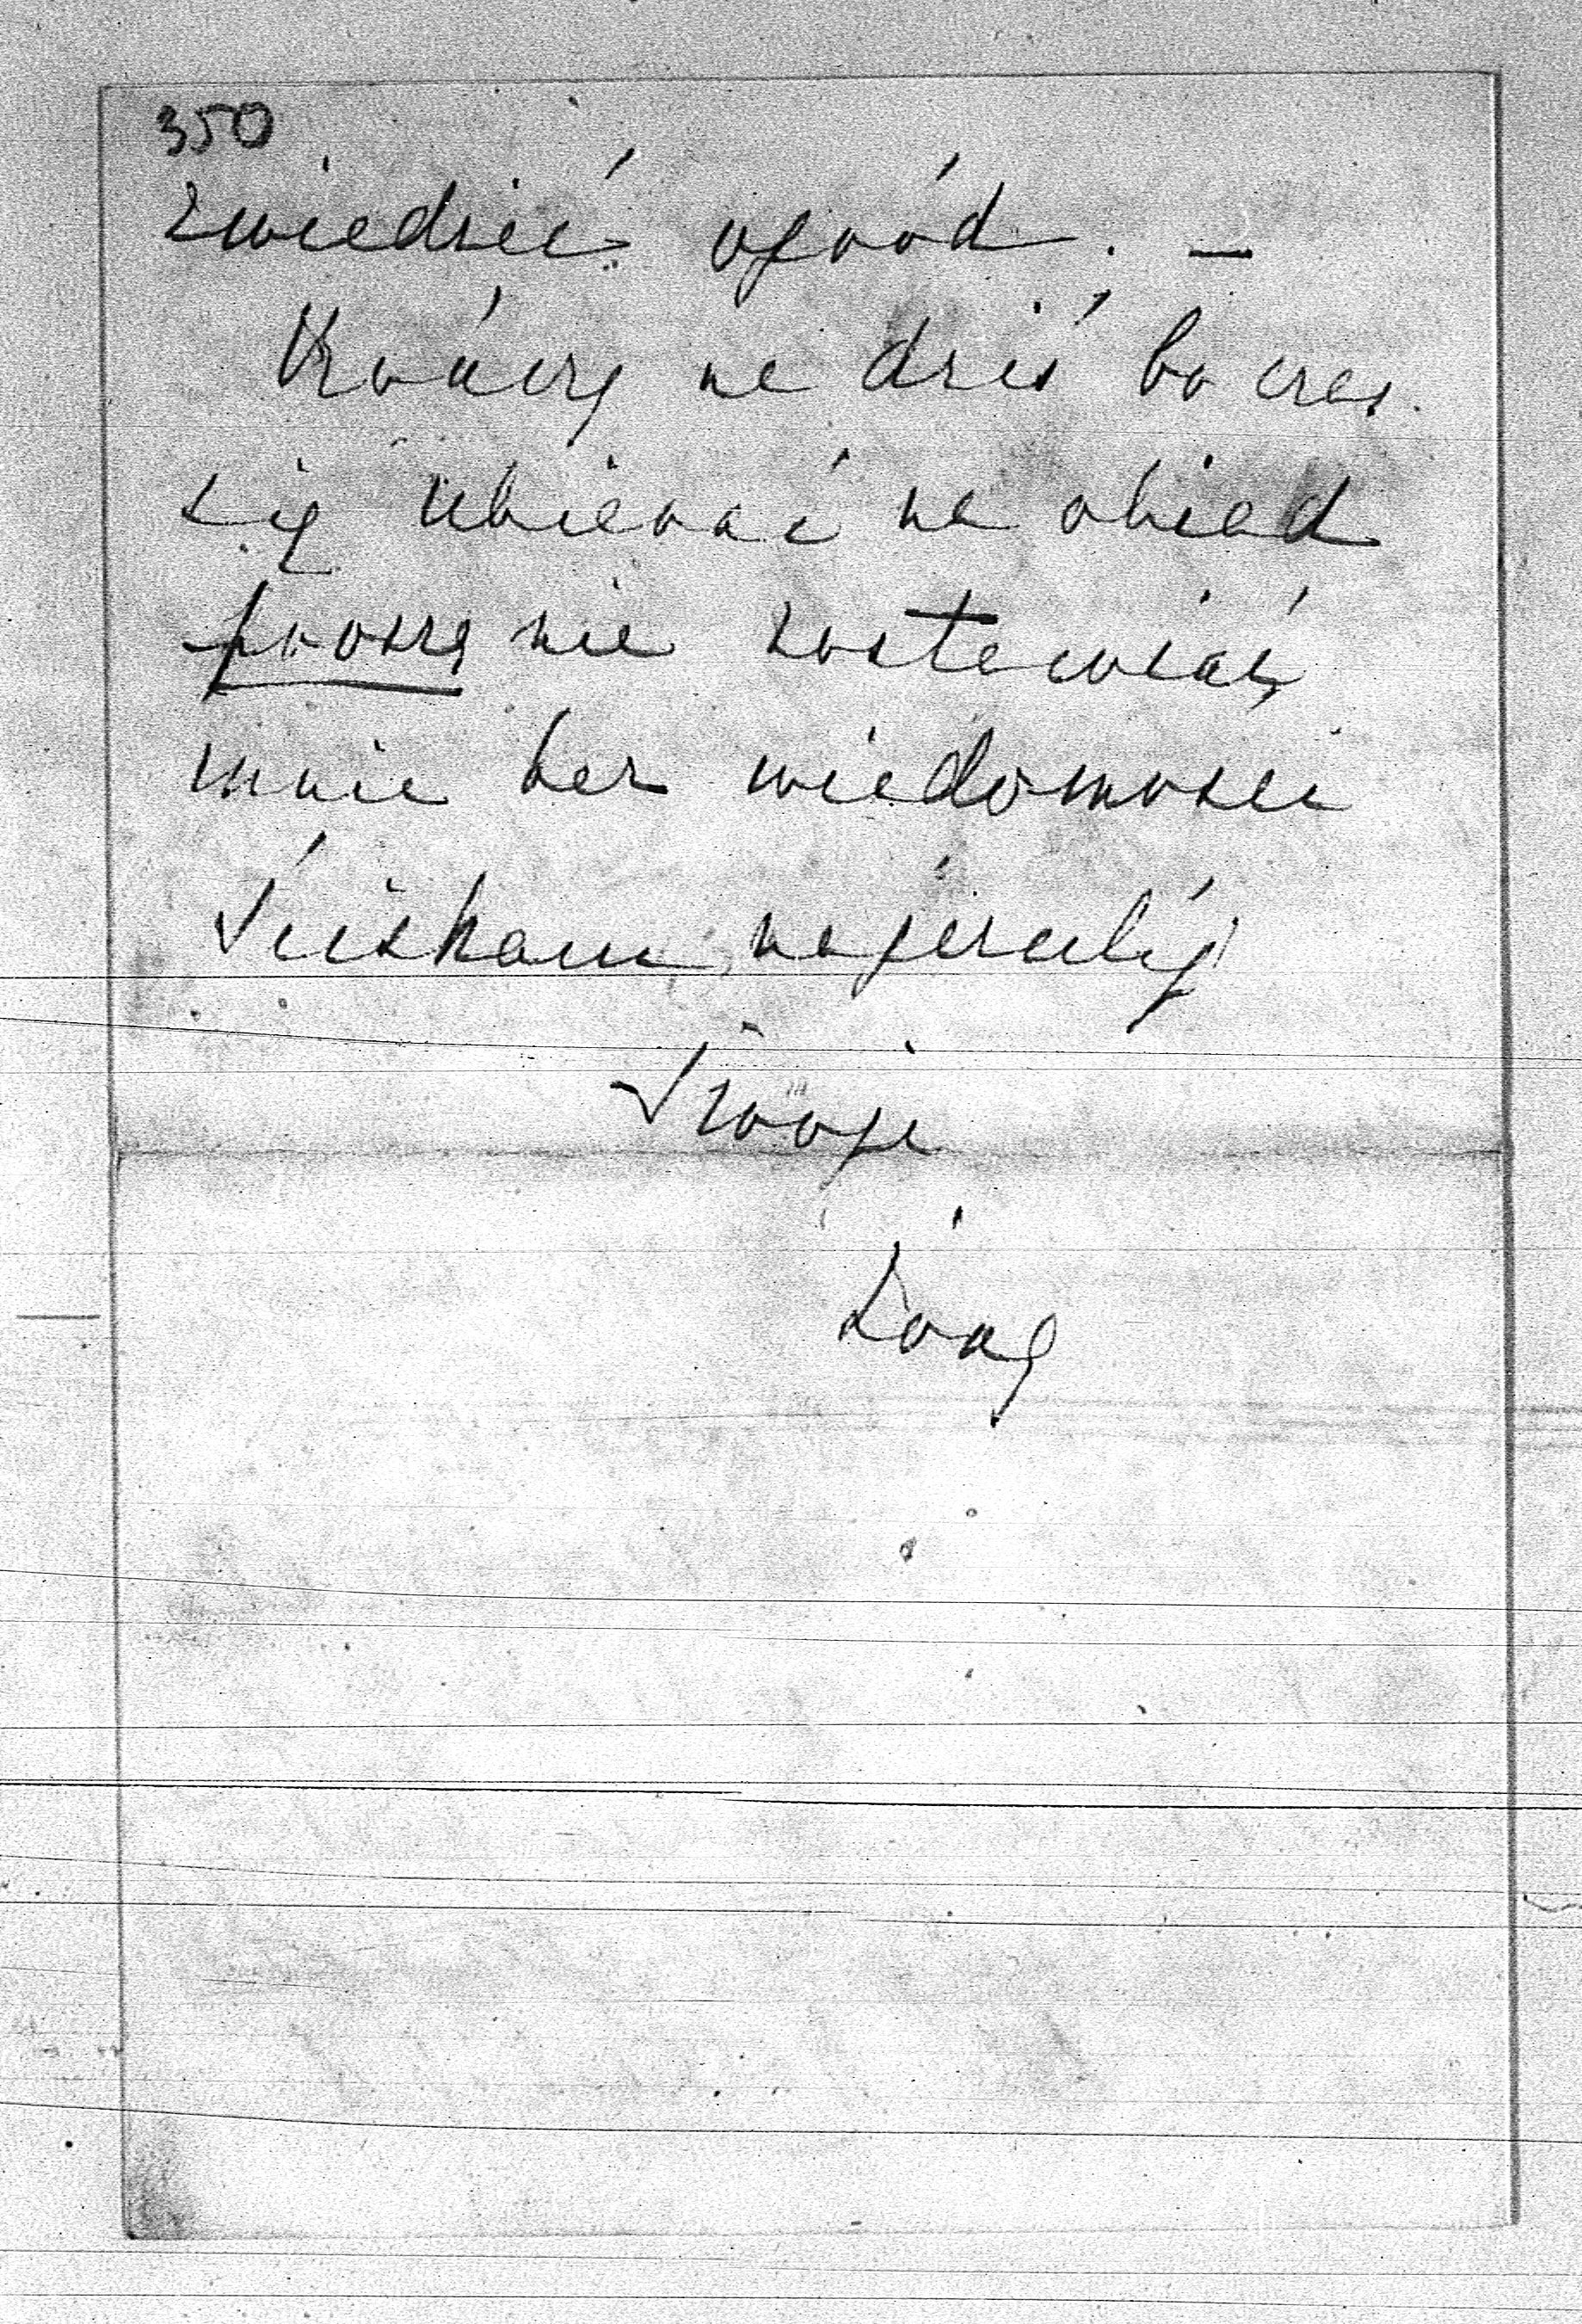 350
zwiedzić ogród. –
Kończę na dziś bo czas
się ubierać na obiad
proszę nie zostawiać
mnie bez wiadomości
Ściskam najczulej
Twoje